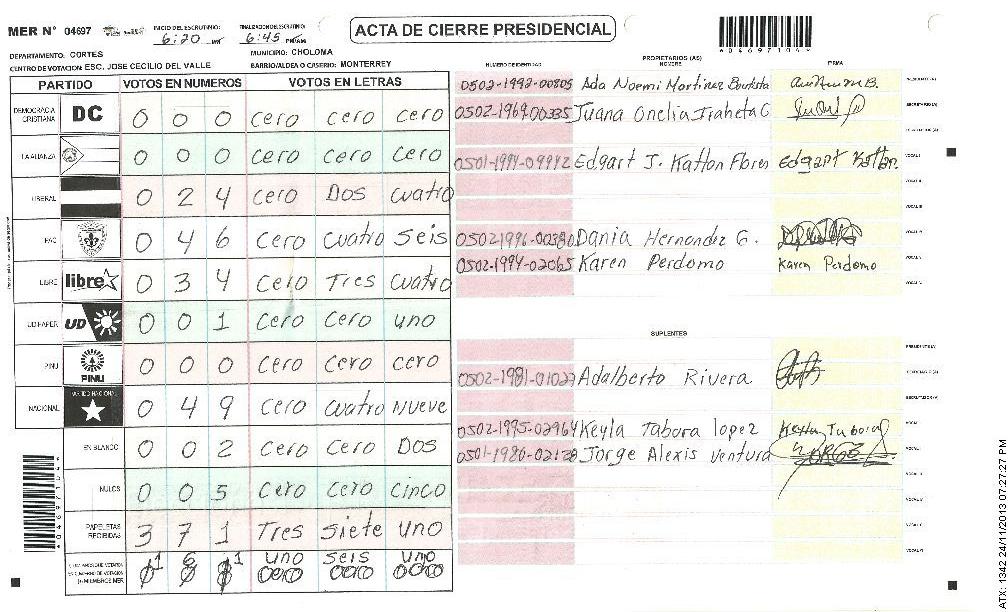 MER Nº 04697
INICIO DEL ESCRUTINIO: 6:20
FINALIZACION DEL ESCRUTINIO: 6:45 PM/AM
ACTA DE CIERRE PRESIDENCIAL
DEPARTAMENTO: CORTÉS
MUNICIPIO: CHOLOMA
CENTRO DE VOTACION: ESC. JOSE CECILIO DEL VALLE
BARRIO/ALDEA O CASERIO: MONTERREY
PARTIDO VOTOS EN NUMEROS VOTOS EN LETRAS
DEMOCRACIA CRISTIANA DC 0 0 0 cero cero cero
LA ALIANZA 0 0 0 cero cero cero
LIBERAL 0 2 4 cero Dos cuatro
PAC 0 4 6 cero cuatro seis
LIBRE libre 0 3 4 cero Tres cuatro
UD-FAPER UD 0 0 1 cero cero uno
PINU PINU 0 0 0 cero cero cero
NACIONAL PARTIDO NACIONAL 0 4 9 cero cuatro Nueve
EN BLANCO 0 0 2 cero cero Dos
NULOS 0 0 5 cero cero cinco
PAPELETAS RECIBIDAS 3 7 1 Tres siete uno
1 6 1 uno seis uno
PROPIETARIOS (AS)
NUMERO DE IDENTIDAD NOMBRE FIRMA
0502-1992-00805 Ada Noemi Martinez Bautista
0502-1969-00335 Juana Onelia Iraheta C
0501-1994-09992 Edgart J. Kattan Flores Edgart Kattan.
0502-1996-00380 Dania Hernandez G.
0502-1994-02065 Karen Perdomo Karen Perdomo
SUPLENTES
0502-1981-01027 Adalberto Rivera
0502-1995-02964 Keyla Tabora lopez Keyla Tabora
0501-1980-02128 Jorge Alexis Ventura
ATX: 1342 24/11/2013 07:27:27 PM